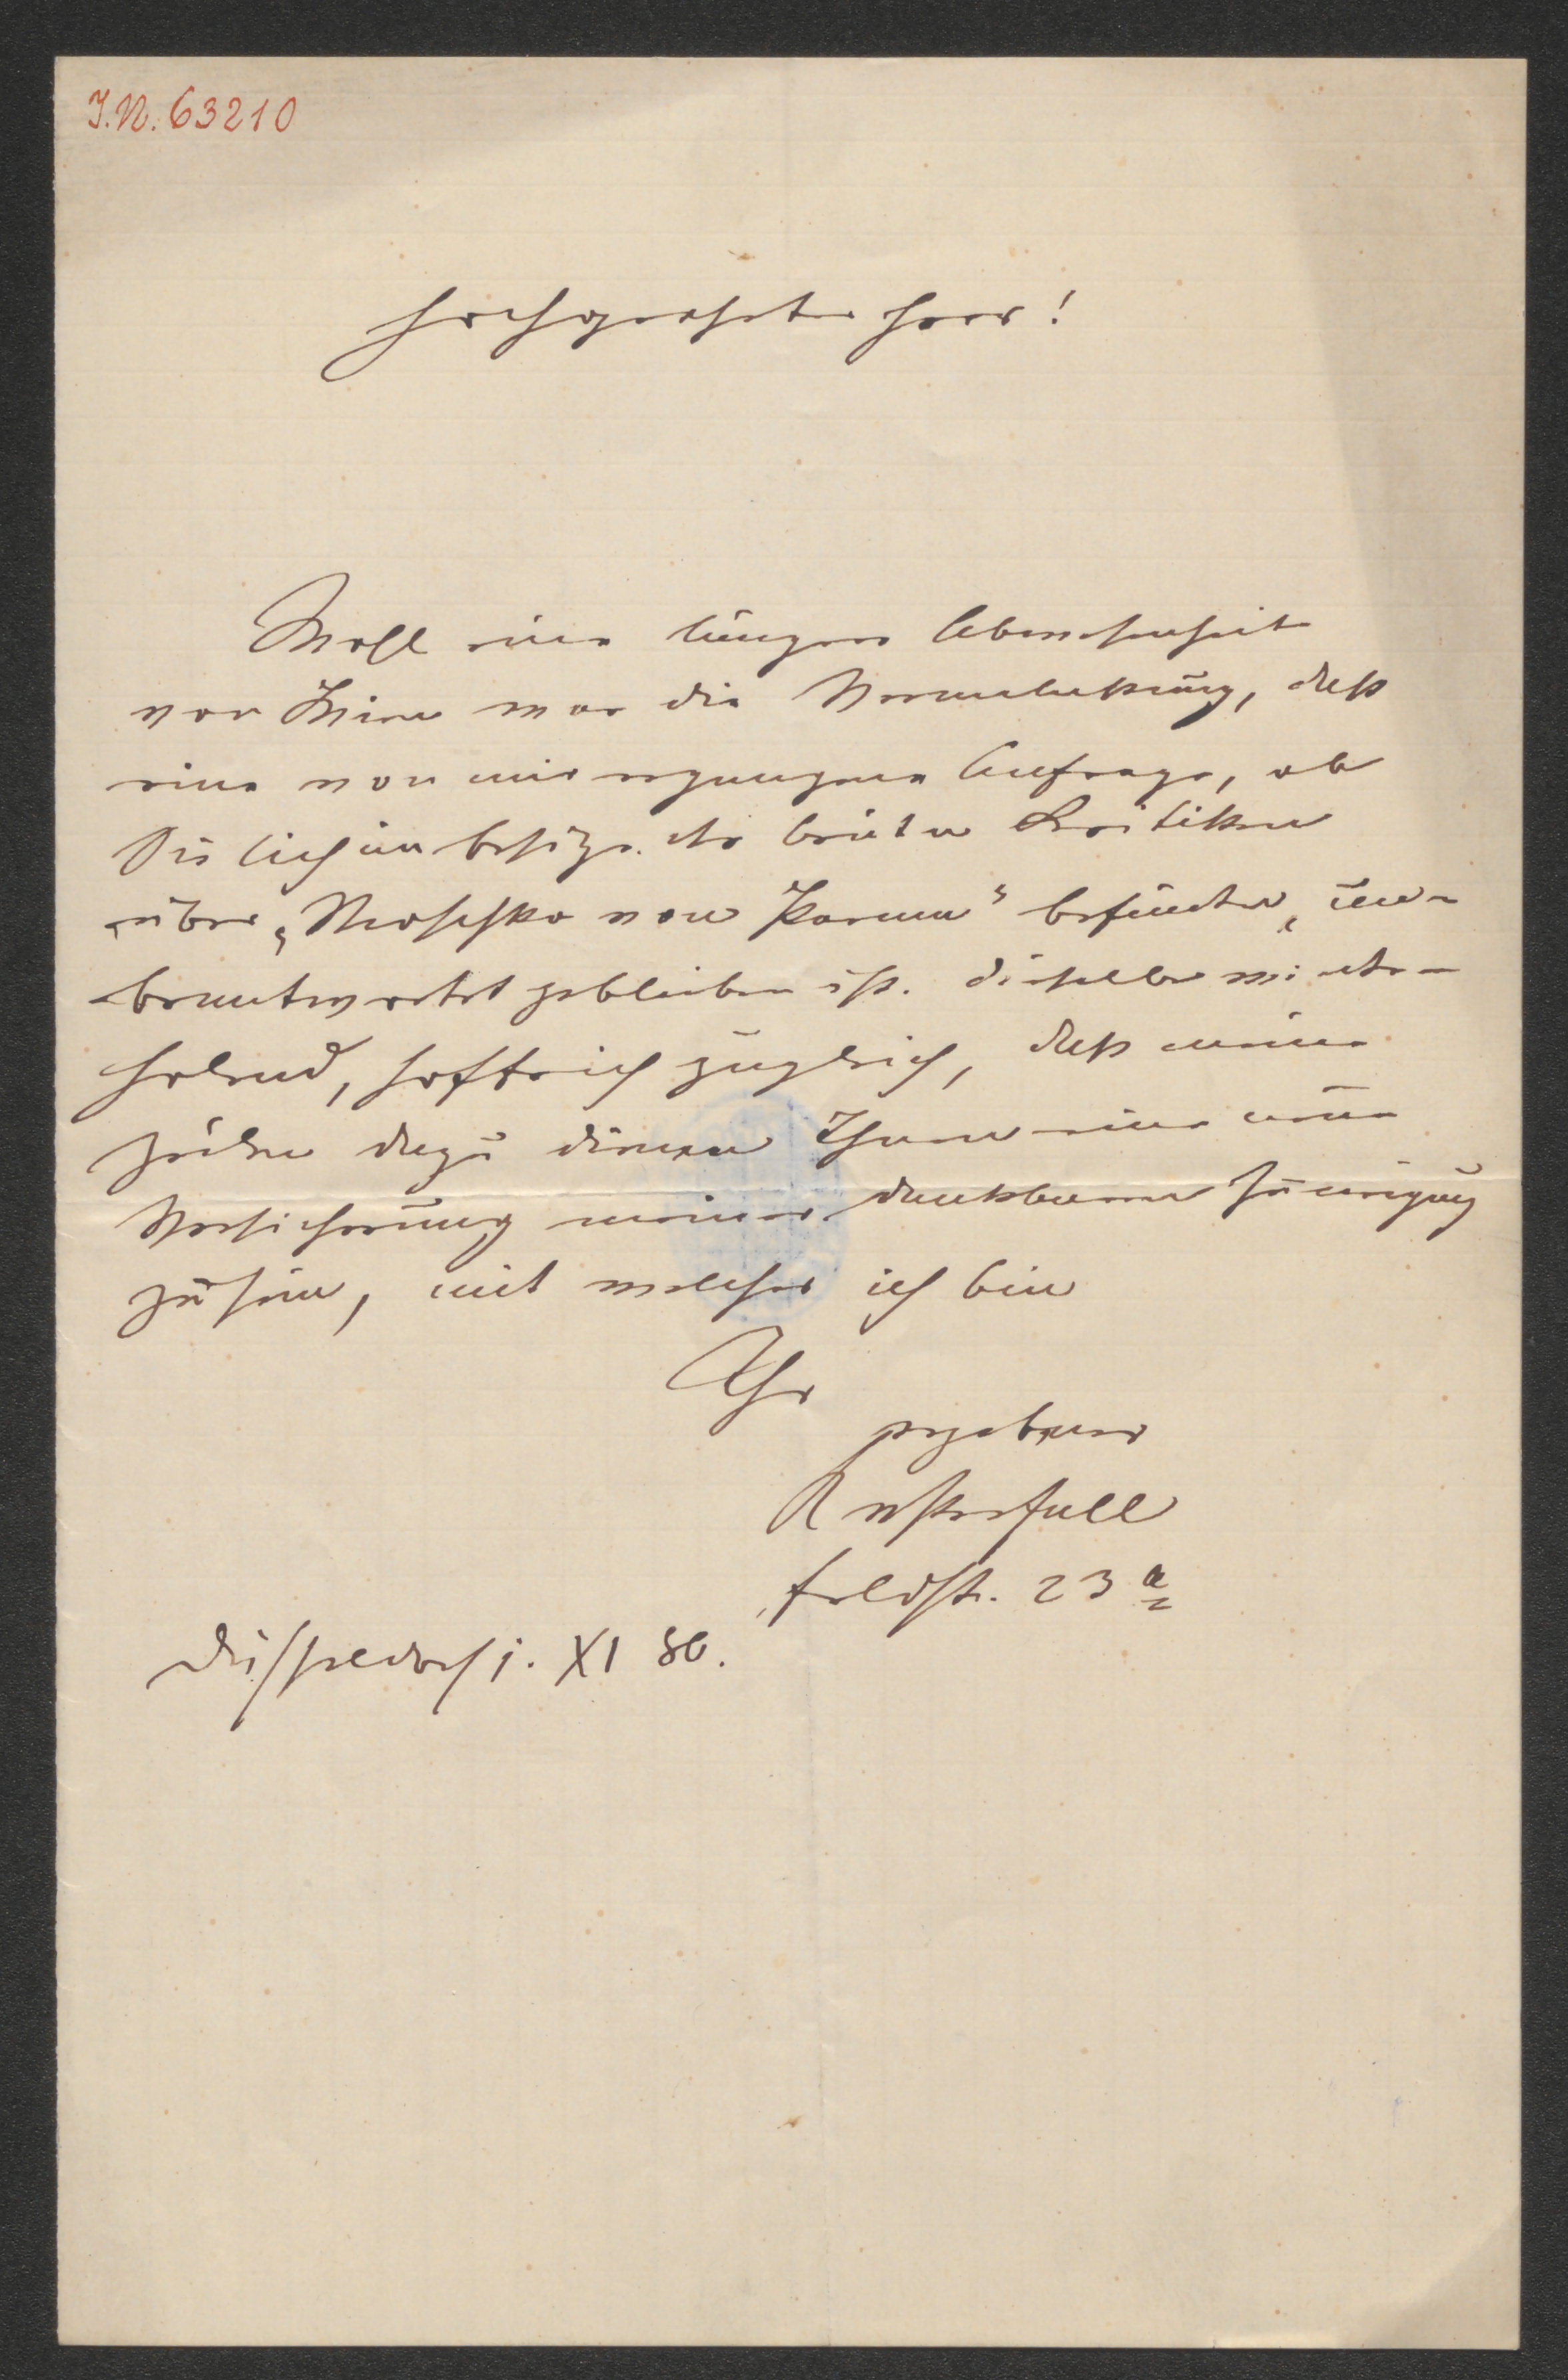 I.N. 63210
Hochgeehrter Herr!
Wohl eine längere Abwesenheit
von Wien war die Veranlassung, daß
eine von mir ergangene Anfrage, ob
Sie sich im Besitze der beiden Kritiken
über „Moschko von Parma" befinden, un-
beantwortet geblieben ist. Dieselbe wieder-
holend, hoffe ich zugleich, daß meine
Zeilen dazu dienen Ihnen eine neue
Versicherung meiner dankbaren Zuneigung
zu sein, mit welcher ich bin
Ihr
ergebener
Feldstr. 23 a
Düsseldorf 1. XI 80.